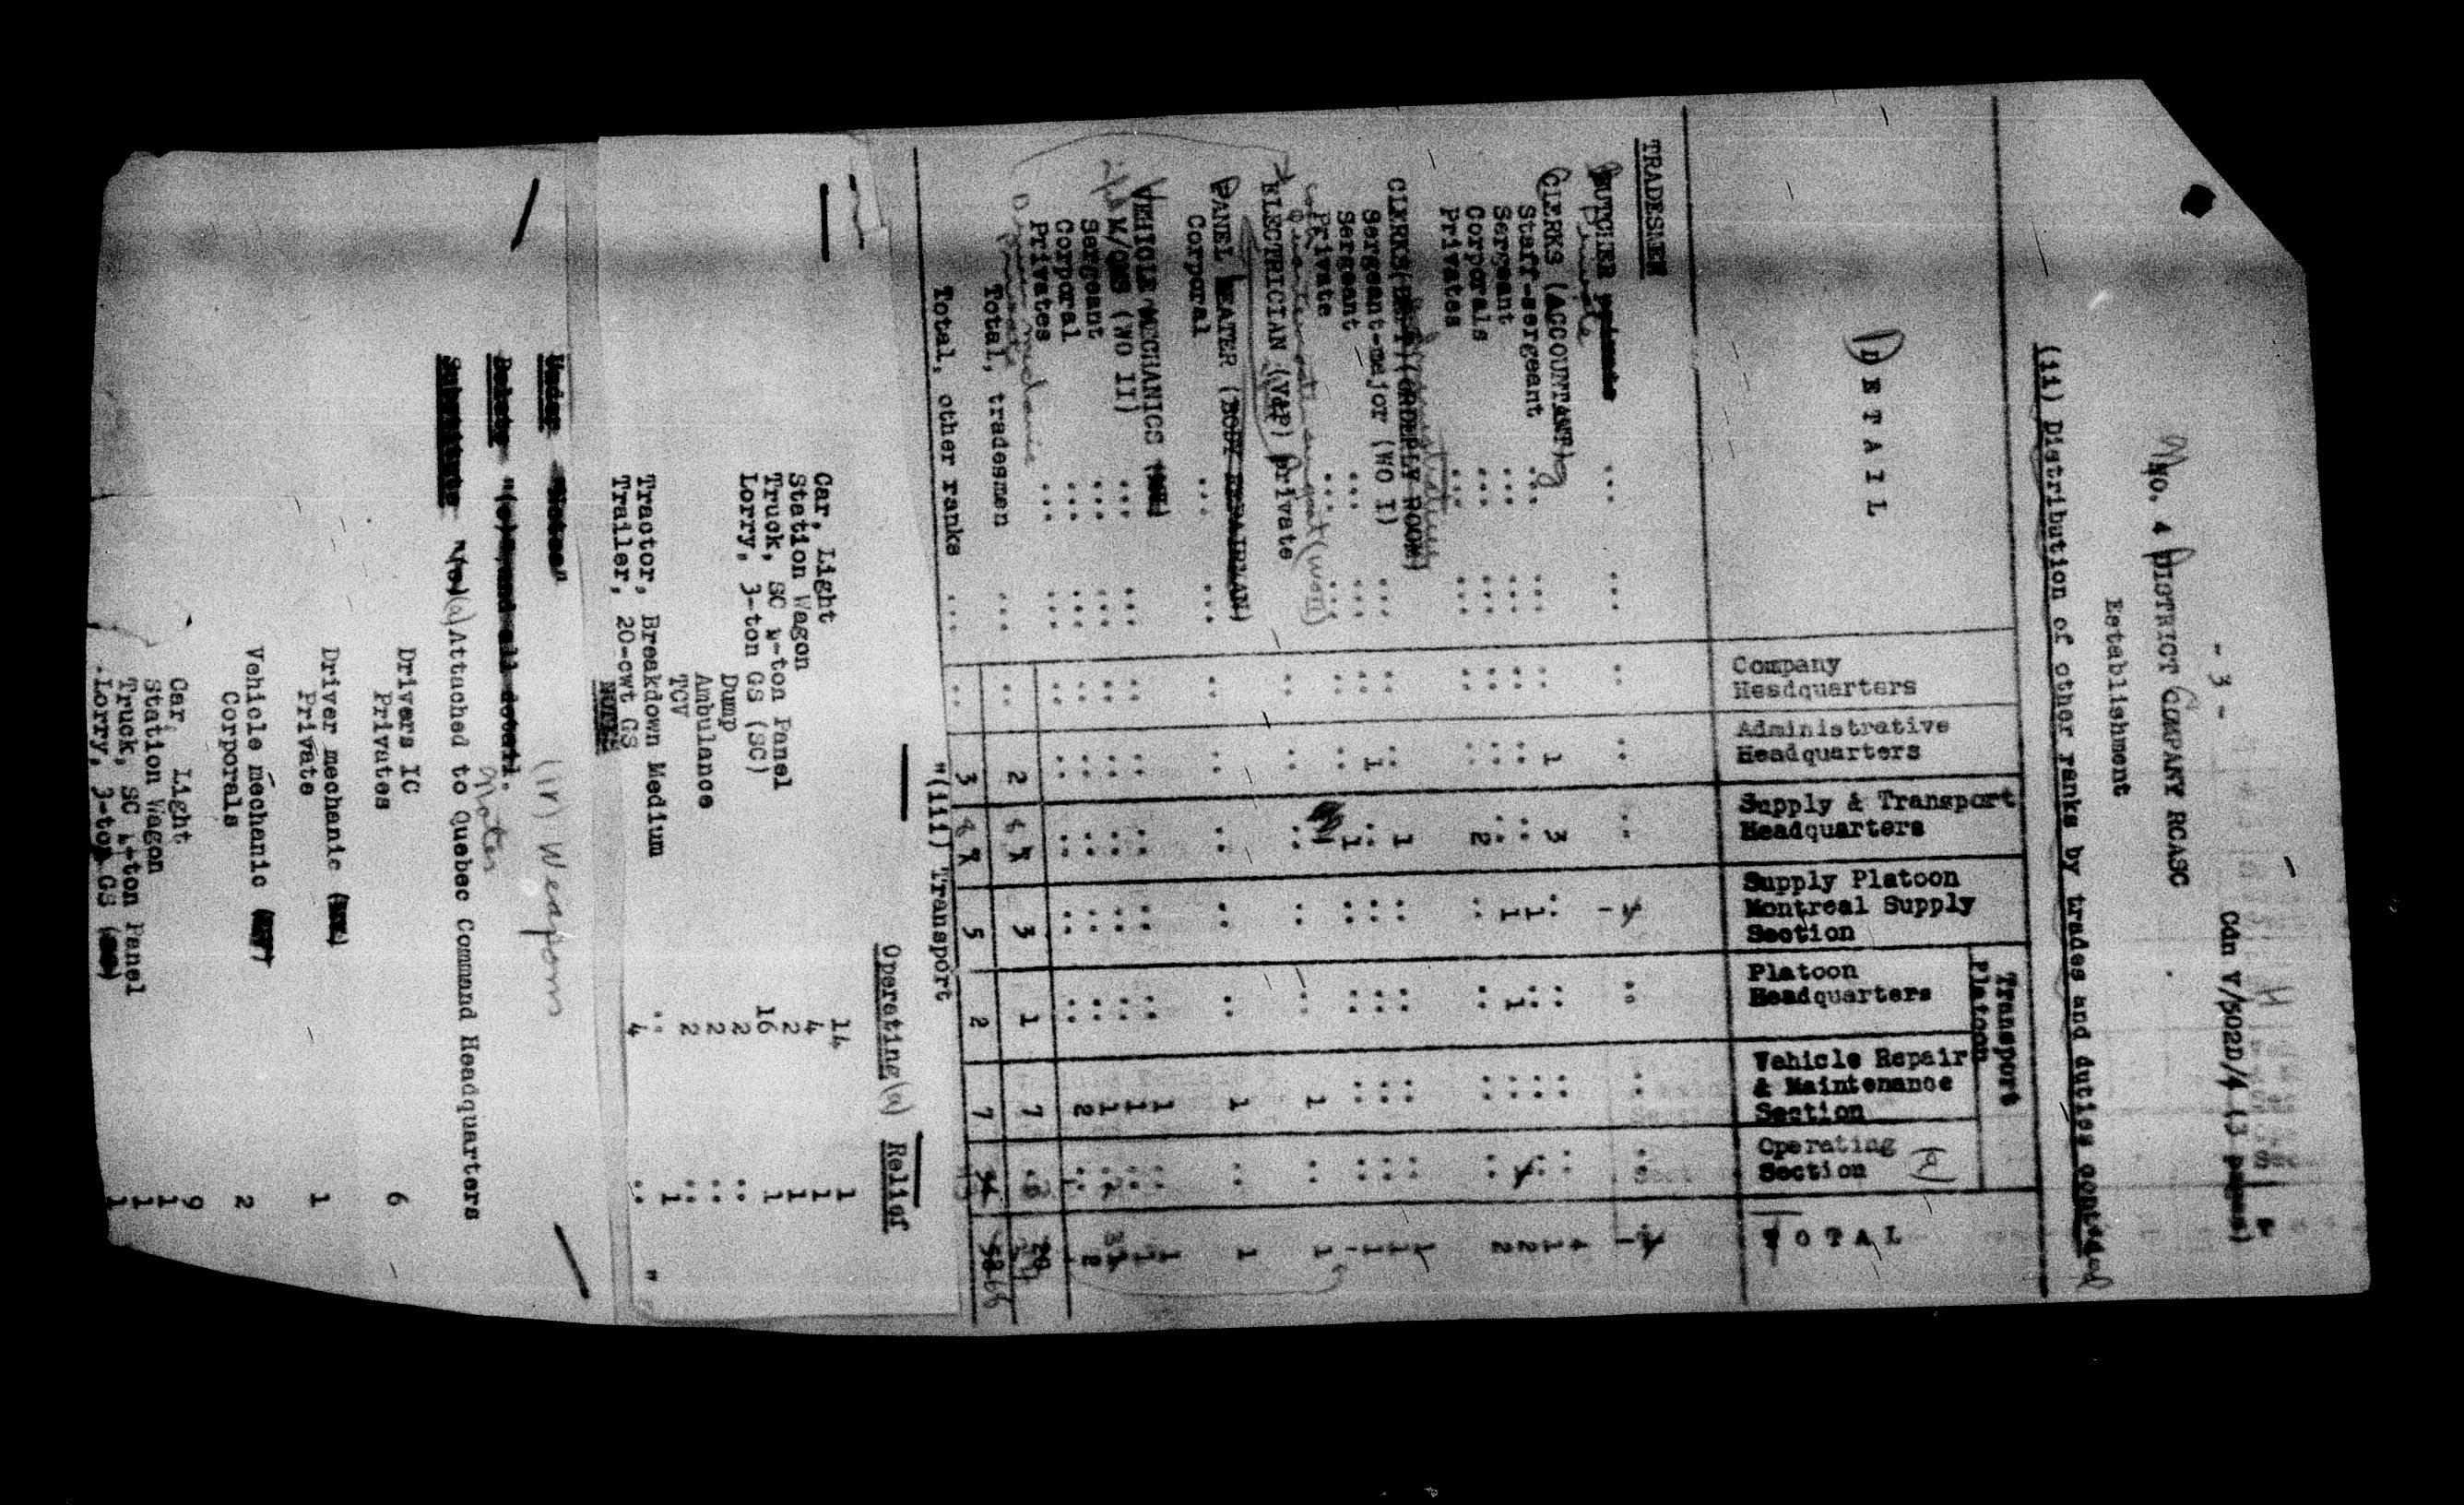 - 3 -
Cdn V/502D/4 (3 pages)
No. 4 DISTRICT COMPANY RCASC
Establishment
(ii) Distribution of other ranks by trades and duties
DETAIL
Company Headquarters
Administrative Headquarters
Supply & Transport Headquarters
Supply Platoon Montreal Supply Section
Transport Platoon
Platoon Headquarters
Vehicle Repair & Maintenance Section
Operating Section (a)
TOTAL
TRADESMEN
BUTCHER private ... ... .. .. .. .. .. ..
CLERKS (ACCOUNTANT)
Staff-sergeant ... ... .. 1 3 .. .. .. ..
Sergeant ... ... .. .. .. 1 .. ..
Corporals ... ... .. .. .. 1 1 ..
Privates ... ... .. .. 2 .. .. .. .. 2
CLERKS (ORDERLY ROOM)
Sergeant-major (WO I) ... .. .. 1 .. .. .. .. 1
Sergeant ... ... .. 1 .. .. .. .. .. 1
Private ... ... .. .. 1 .. .. .. .. 1
ELECTRICIAN (V&P) private .. .. .. .. .. 1 .. 1
PANEL BEATER (BODY REPAIRMAN)
Corporal ... ... .. .. .. .. .. 1 .. 1
VEHICLE MECHANICS
M/QMS (WO II) ... ... .. .. .. .. .. 1 .. 1
Sergeant ... ... .. .. .. .. .. 1 .. 1
Corporal ... ... .. .. .. .. .. 1
Privates ... ... .. .. .. .. .. 2 .. 2
Driver Mechanic
Private
Total, tradesmen ... ... .. 2 8 3 1 7
Total, other ranks ... .. 3 8 5 2 7 66
"(iii) Transport
Operating (a) Relief
Car, Light 14 1
Station Wagon 4 1
Truck, SC ½-ton Panel 2 1
Lorry, 3-ton GS (SC) 16 1
Dump 2 ..
Ambulance 2 ..
TCV 2 ..
Tractor, Breakdown Medium .. 1
Trailer, 20-cwt GS 4 .. "
NOTES
(iv) Weapons
Under "Notes"
Delete "(c) and all detail.
Notes
Substitute "(c) (a) Attached to Quebec Command Headquarters
Drivers IC
Privates 6
Driver mechanic
Private 1
Vehicle mechanic
Corporals 2
Car, Light 9
Station Wagon 1
Truck, SC ½-ton Panel 1
Lorry, 3-ton GS 1